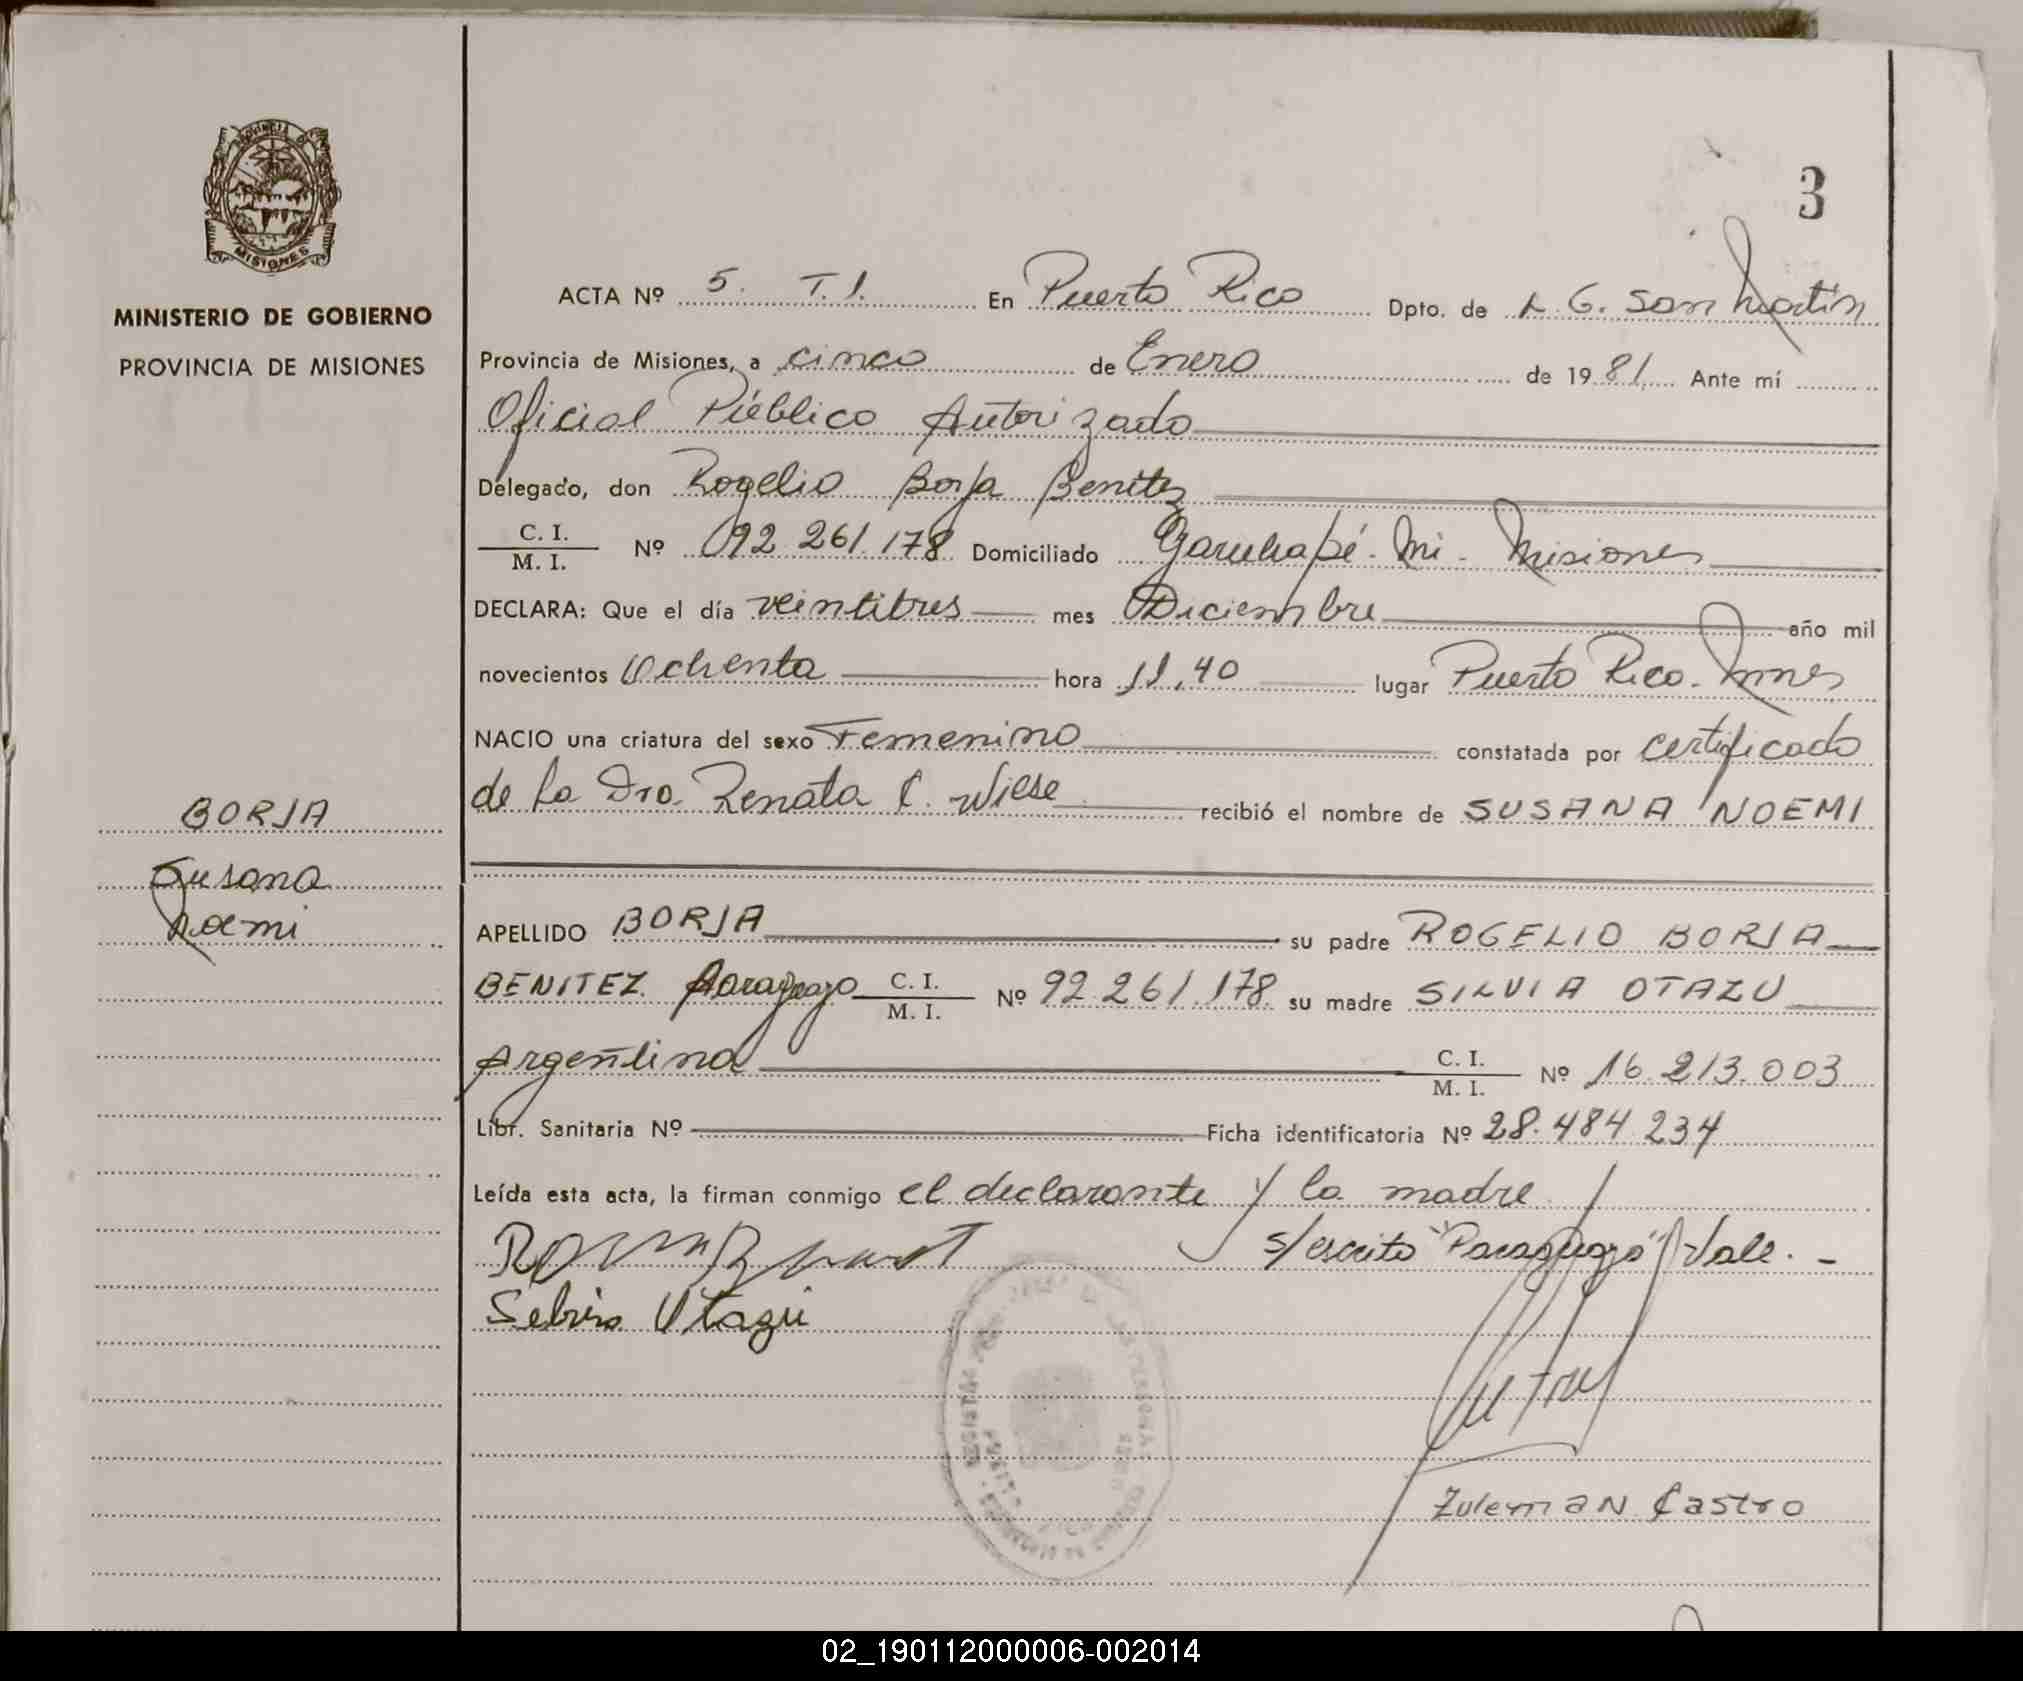 3
PROVINCIA DE
MISIONES
MINISTERIO DE GOBIERNO
PROVINCIA DE MISIONES
BORJA
Susana
Noemi
ACTA Nº 5. T.I. En Puerto Rico Dpto. de L. G. San Martín
Provincia de Misiones, a cinco de Enero de 1981. Ante mí
Oficial Público Autorizado
Delegado, don Rogelio Borja Benítez
C. I.
M. I. Nº 92.261.178 Domiciliado Garuhapé-Mi-Misiones
DECLARA: Que el día veintitres mes Diciembre año mil
novecientos Ochenta hora 11,40 lugar Puerto Rico. Mnes
NACIO una criatura del sexo Femenino constatada por certificado
de la Dra. Renata C. Wiese recibió el nombre de SUSANA NOEMI
APELLIDO BORJA su padre ROGELIO BORJA
BENITEZ. Paraguayo C. I. M. I. Nº 92.261.178 su madre SILVIA OTAZU
Argentina C. I. M. I. Nº 16.213.003
Libr. Sanitaria Nº Ficha identificatoria Nº 28.484.234
Leída esta acta, la firman conmigo el declarante y la madre
s/escrito "Paraguayo" Vale. -
Otazu
Zuleman Castro
02_190112000006-002014